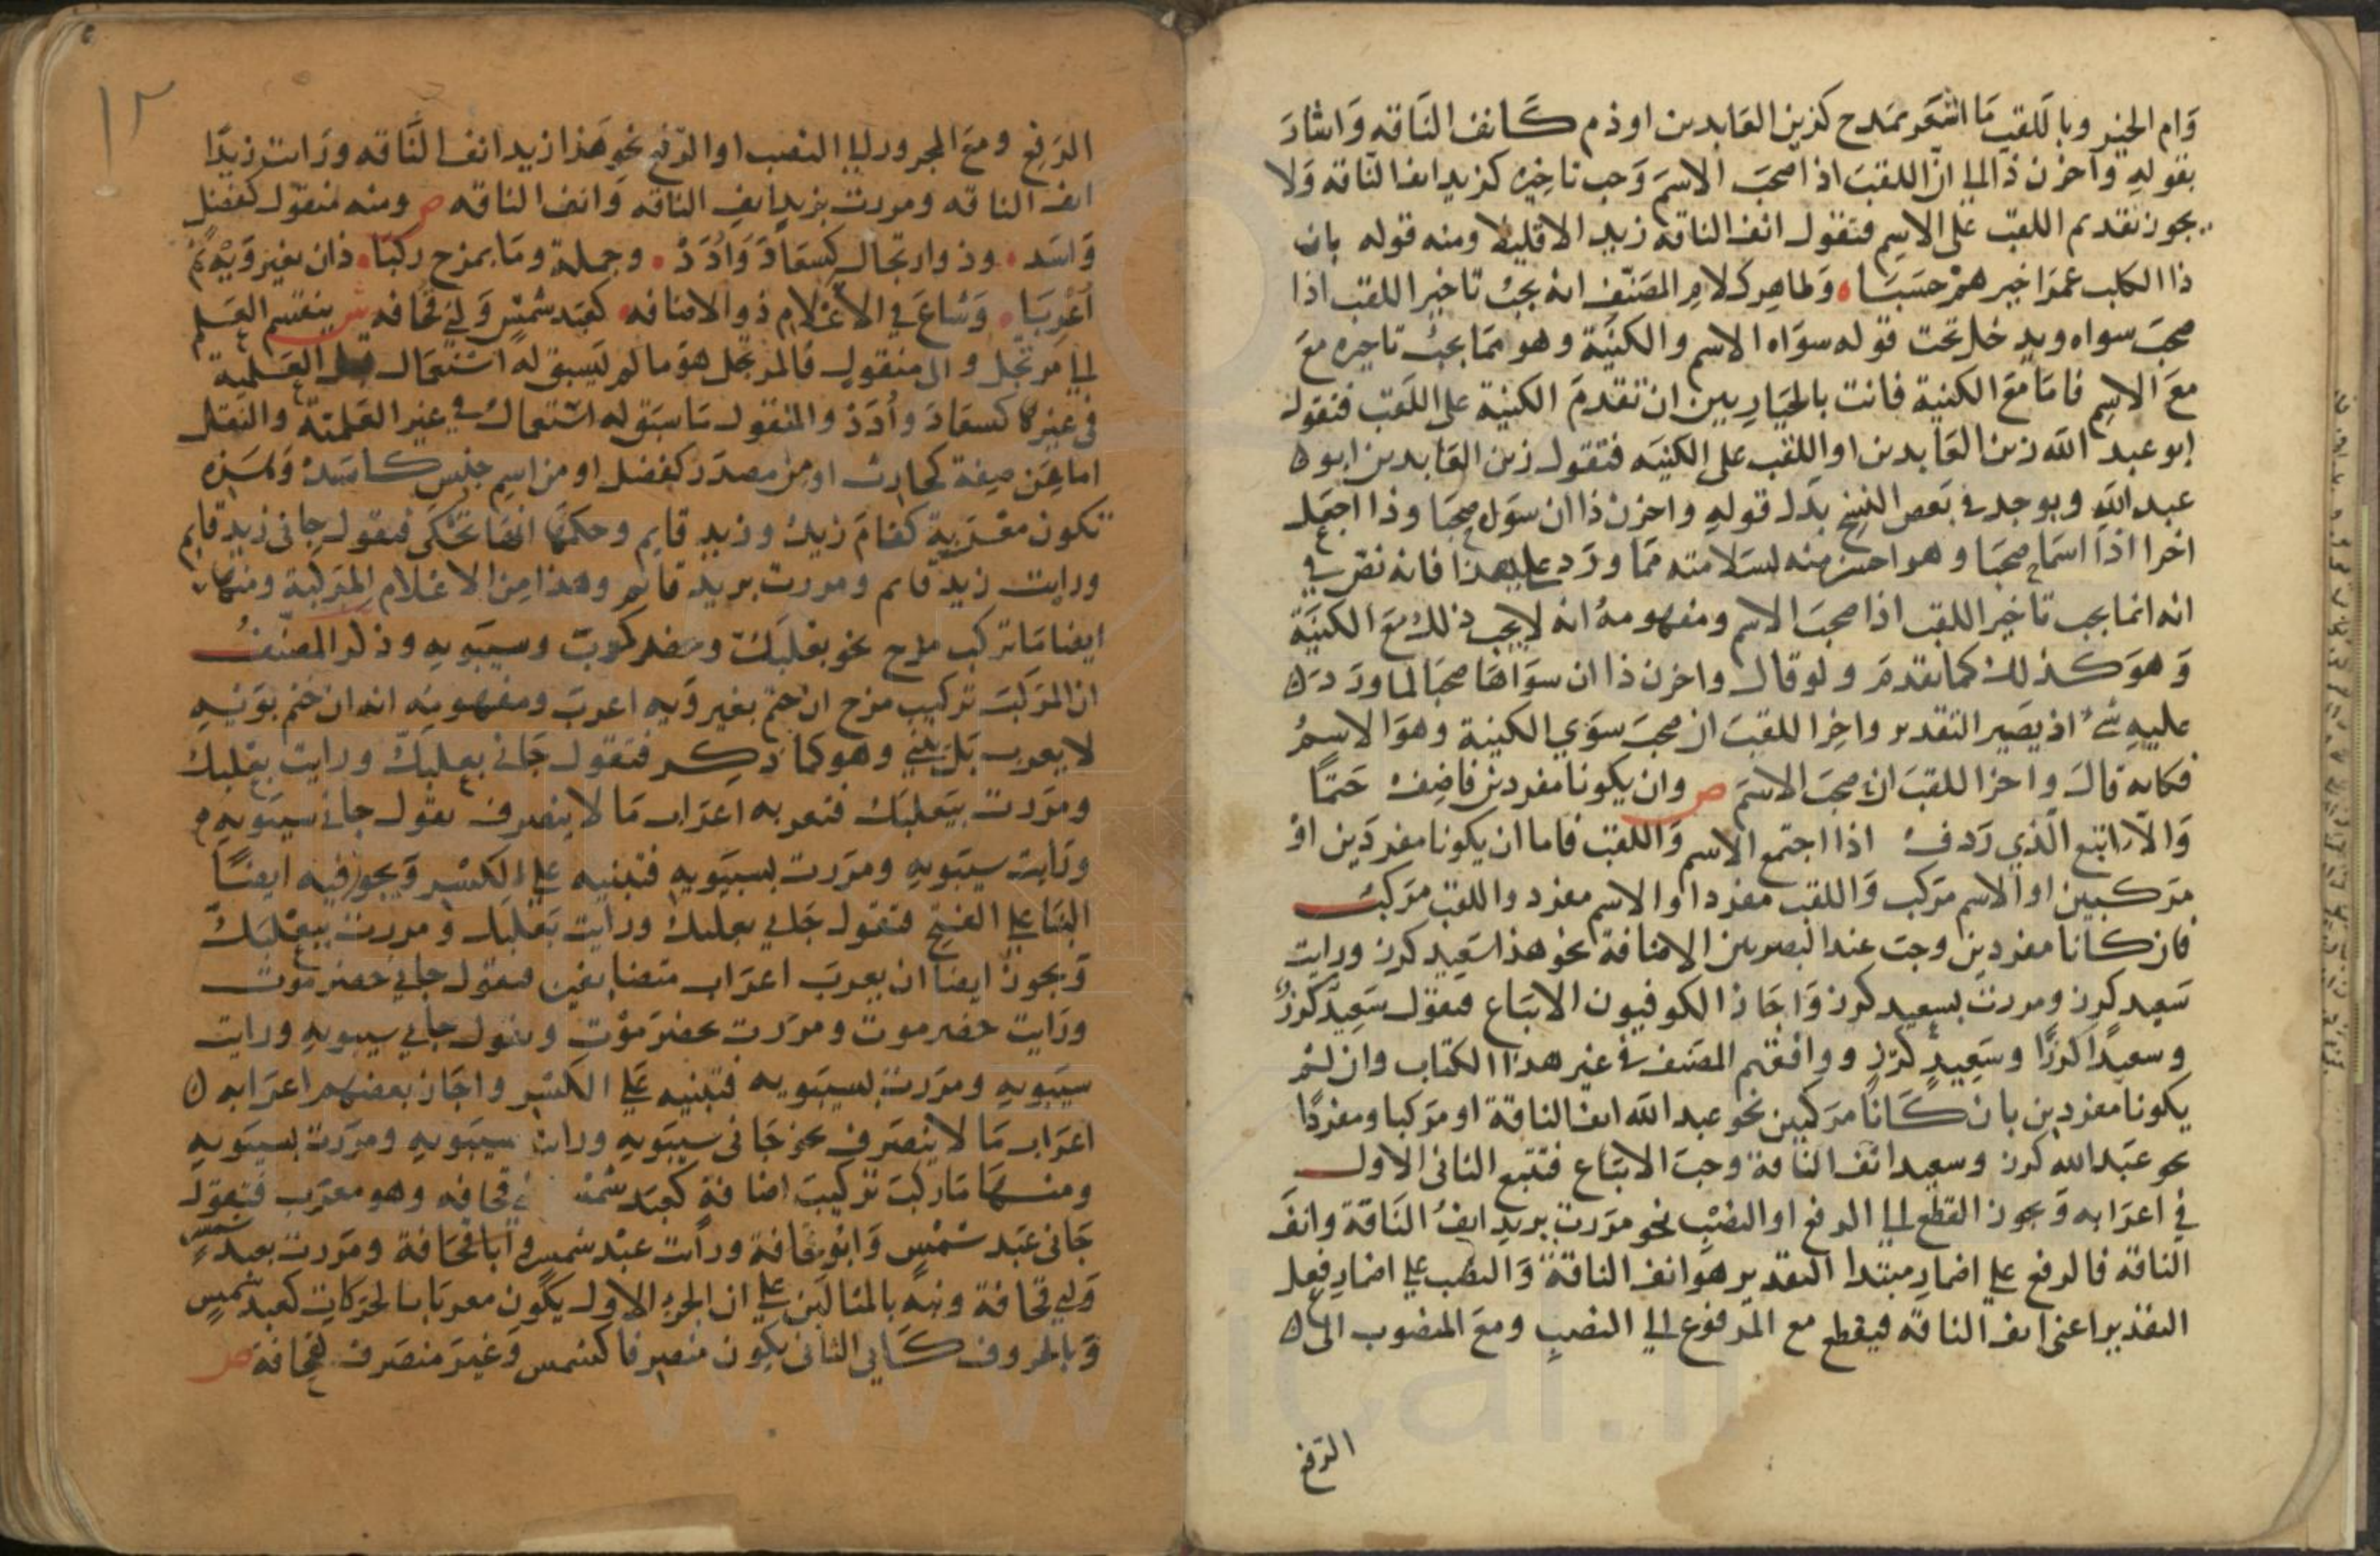 وام الخير وباللقب ما اشعر بمدح كزين العابدين او ذم كانف الناقه واشار
بقوله واخرن ذا الى ان اللقب اذا صحب الاسم وجب تاخيره كزيد انف الناقه ولا
يجوز تقديم اللقب على الاسم فتقول انف الناقه زيد الا قليلا ومنه قوله بان
ذا الكلب عمرا خيرهم حسبا وظاهر كلام المصنف انه يجب تاخير اللقب اذا
صحب سواه ويدخل تحت قوله سواه الاسم والكنية وهو مما يجب تاخيره مع
مع الاسم فاما مع الكنية فانت بالخيار بين ان تقدم الكنية على اللقب فتقول
ابو عبد الله زين العابدين او اللقب على الكنيه فتقول زين العابدين ابو
عبد الله ويوجد في بعض النسخ بدل قوله واخرن ذا ان سواه صحبا وذا اجعل
اخرا اذا اسما صحبا وهو احسن منه لسلامته مما ورد على هذا فانه نص في
انه انما يجب تاخير اللقب اذا صحب الاسم ومفهومه انه لا يجب ذلك مع الكنية
وهو كذلك كما تقدم ولو قال واخرن ذا ان سواها صحبا لما ورد
عليه شي اذ يصير التقدير واخر اللقب ان صحب سوي الكنية وهو الاسم
فكانه قال واخر اللقب ان صحب الاسم ص وان يكونا مفردين فاضف حتما
والا اتبع الذي ردف اذا اجتمع الاسم واللقب فاما ان يكونا مفردين او
مركبين او الاسم مركب واللقب مفردا او الاسم مفرد واللقب مركب
فان كانا مفردين وجب عند البصريين الاضافة نحو هذا سعيد كرز ورايت
سعيد كرز ومررت بسعيد كرز واجاز الكوفيون الاتباع فتقول سعيد كرز
وسعيدا كرزا وسعيد كرز ووافقهم المصنف في غير هذا الكتاب وان لم
يكونا مفردين بان كانا مركبين نحو عبد الله انف الناقة او مركبا ومفردا
نحو عبد الله كرز وسعيد انف الناقة وجب الاتباع فتتبع الثاني الاول
في اعرابه ويجوز القطع الى الرفع او النصب نحو مررت بزيد انف الناقة وانف
الناقه فالرفع على اضمار مبتدا التقدير هو انف الناقة والنصب على اضمار فعل
التقدير اعني انف الناقه فيقطع مع المرفوع الي النصب ومع المنصوب الى
الرفع
١٢
الرفع ومع المجرور الى النصب او الرفع نحو هذا زيد انف الناقه ورايت زيدا
انف الناقه ومررت بزيد انف الناقه وانف الناقه ص ومنه منقول كفضل
واسد وذو ارتجال كسعاد وادد وجملة وما بمزج ركبا ذا ان بغير ويه تم
اعربا وشاع في الاعلام ذو الاضافه كعبد شمس وابي قحافه ش ينقسم العلم
الى مرتجل والى منقول فالمرتجل هو ما لم يسبق له استعمال قبل العلمية
في غيرها كسعاد وادد والمنقول ما سبق له استعمال في غير العلمية والنقل
اما من صفة كحارث او من مصدر كفضل او من اسم جنس كاسد وهذه
تكون معربة كقام زيد وزيد قايم وحكمها انها تحكى فتقول جاني زيد قايم
ورايت زيد قايم ومررت بزيد قائم وهذا من الاعلام المركبة ومنها
ايضا ما تركب مزج نحو بعلبك ومعديكرب وسيبويه وذكر المصنف
ان المركب تركيب مزج ان ختم بغير ويه اعرب ومفهومه انه ان ختم بويه
لا يعرب بل يبني وهو كما ذكر فتقول جاني بعلبك ورايت بعلبك
ومررت ببعلبك فتعربه اعراب ما لا ينصرف تقول جاني سيبويه
ورايت سيبويه ومررت بسيبويه فتبنيه على الكسر ويجوز فيه ايضا
البنا على الفتح فتقول جاني بعلبك ورايت بعلبك ومررت ببعلبك
ويجوز ايضا ان يعرب اعراب متضايفين فتقول جاني حضرموت
ورايت حضرموت ومررت بحضرموت وتقول جاني سيبويه ورايت
سيبويه ومررت بسيبويه فتبنيه على الكسر واجاز بعضهم اعرابه
اعراب ما لا ينصرف نحو جاني سيبويه ورايت سيبويه ومررت بسيبويه
ومنها ما ركب تركيب اضافة كعبد شمس قحافه وهو معرب فتقول
جاني عبد شمس وابو قحافة ورايت عبد شمس وابا قحافة ومررت بعبد شمس
وابي قحافة ونبه بالمثالين على ان الجزء الاول يكون معربا بالحركات كعبد شمس
وبالحروف كابي الثاني يكون منصرفا كشمس وغير منصرف كقحافة ص